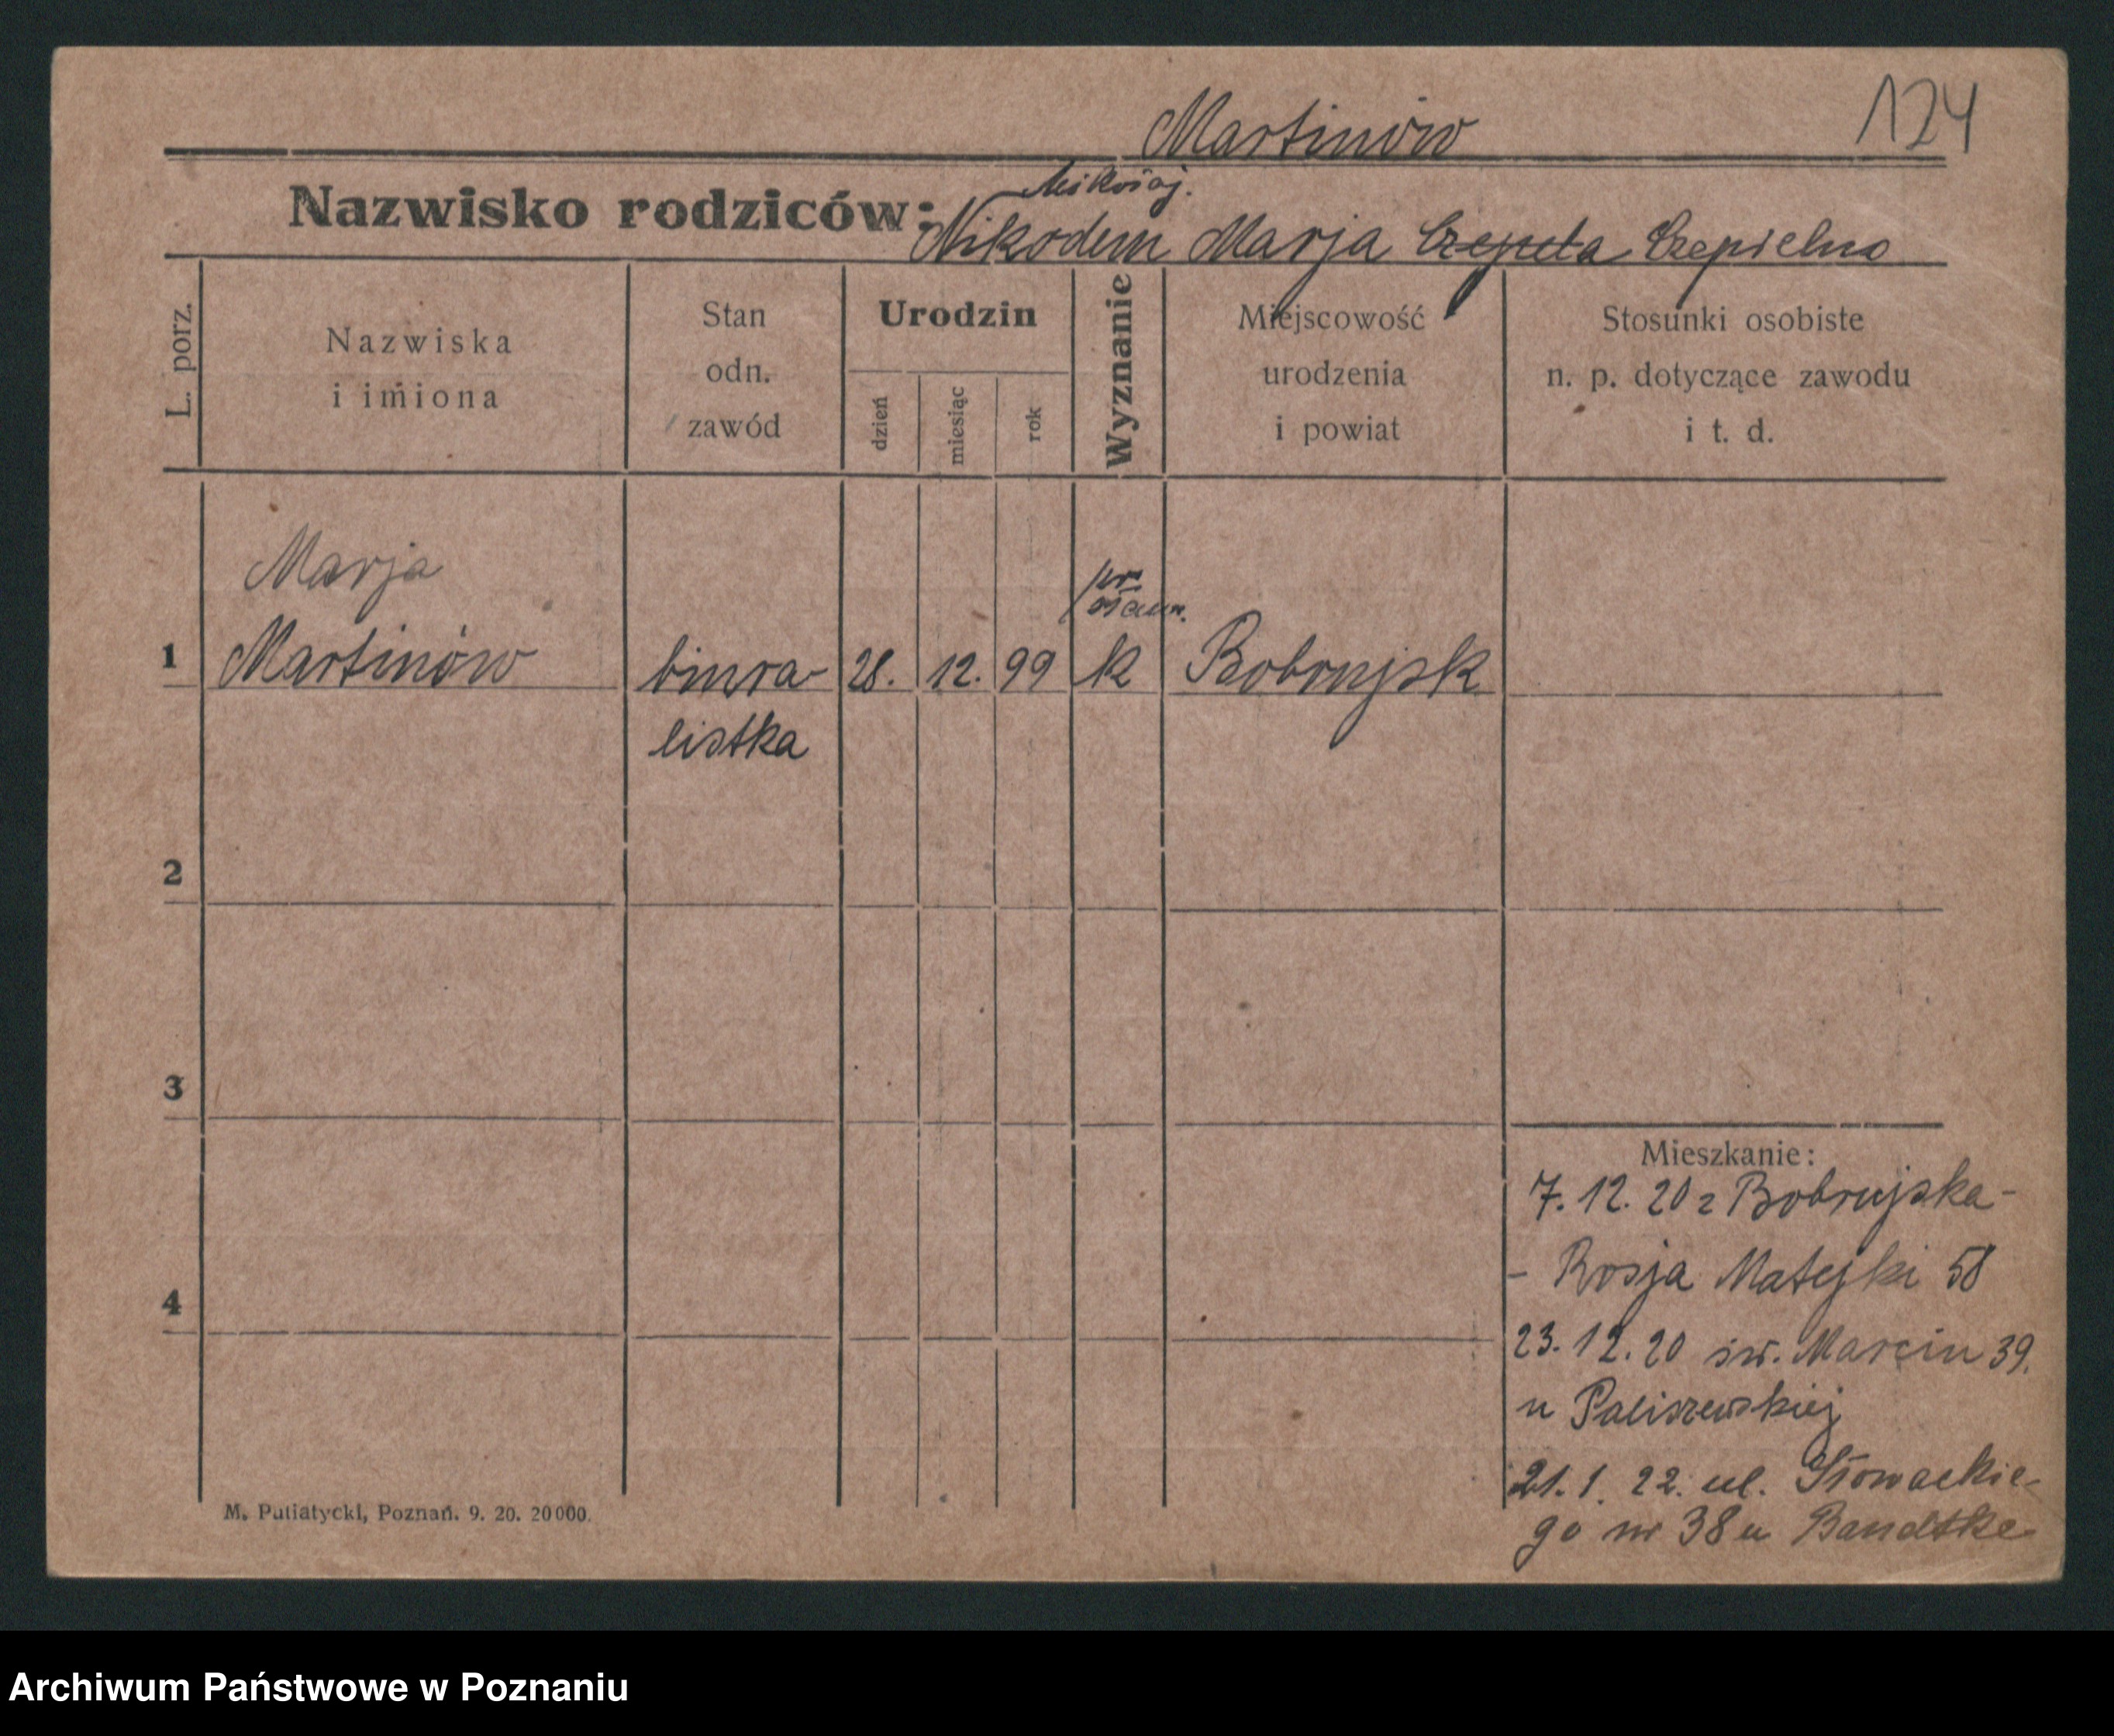 Martinów
124
Mikołaj.
Nazwisko rodziców: Nikodem Marja Czepeta Czepielno
L. porz.
Nazwiska
i imiona
Stan
odn.
zawód
Urodzin
dzień
miesiąc
rok
Wyznanie
Miejscowość
urodzenia
i powiat
Stosunki osobiste
n. p. dotyczące zawodu
i t. d.
Marja
prawosław.
1 Martinów biura- 28. 12. 99 k Bobrujsk
listka
2
3
4
Mieszkanie:
7. 12. 20 z Bobrujska-
- Rosja Matejki 58
23. 12. 20 św. Marcin 39.
u Paliszewskiej
21. 1. 22. ul. Słowackie-
go nr 38 u Bandtke
M. Putiatycki, Poznań. 9. 20. 20000.
Archiwum Państwowe w Poznaniu